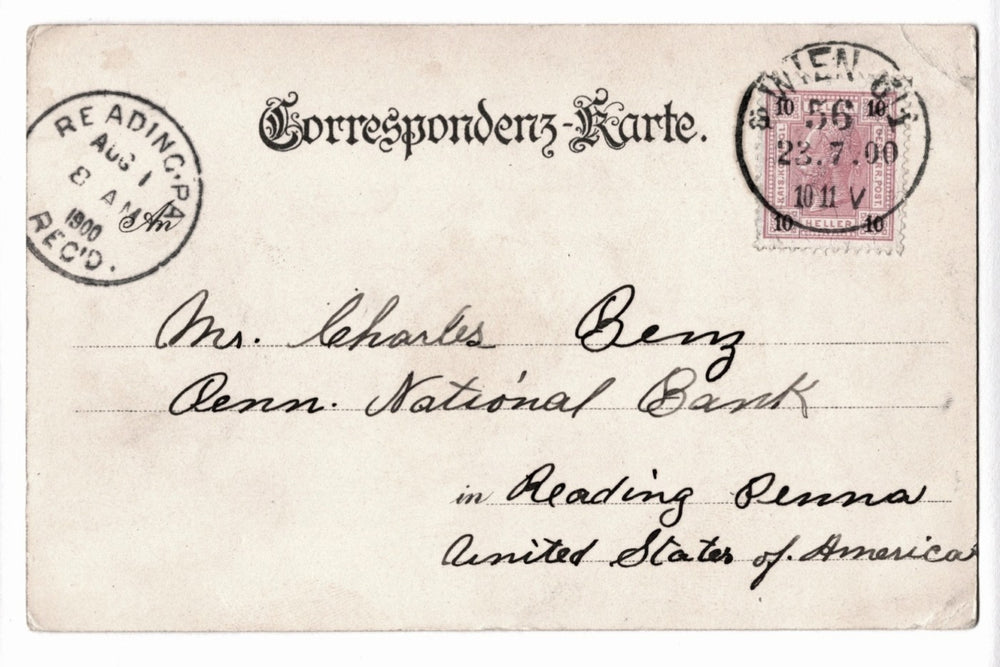 Correspondenz-Karte.
READING, PA
AUG 1
8 AM
1900
REC'D.
WIEN
56
23.7.00
10 11 V
10 10
KAIS. KÖNIGL.
ÖSTERR. POST
HELLER
10 10
An
Mr. Charles Benz
Penn. National Bank
in Reading Penna
United States of. America